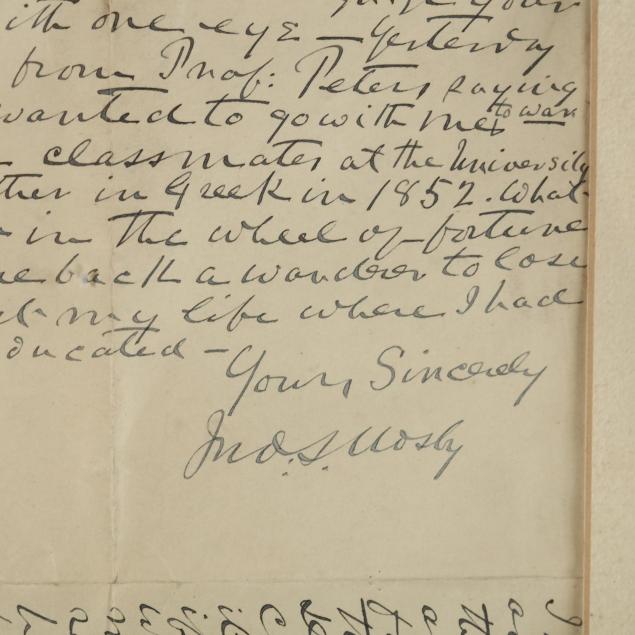 your
ith one eye - Yesterday
from Prof: Peters saying
wanted to go with me to war
classmates at the University
ther in Greek in 1852. What-
in the wheel of fortune
me back a wanderer to lose
my life where I had
ducated -
Yours Sincerely
Jno. S. Mosby